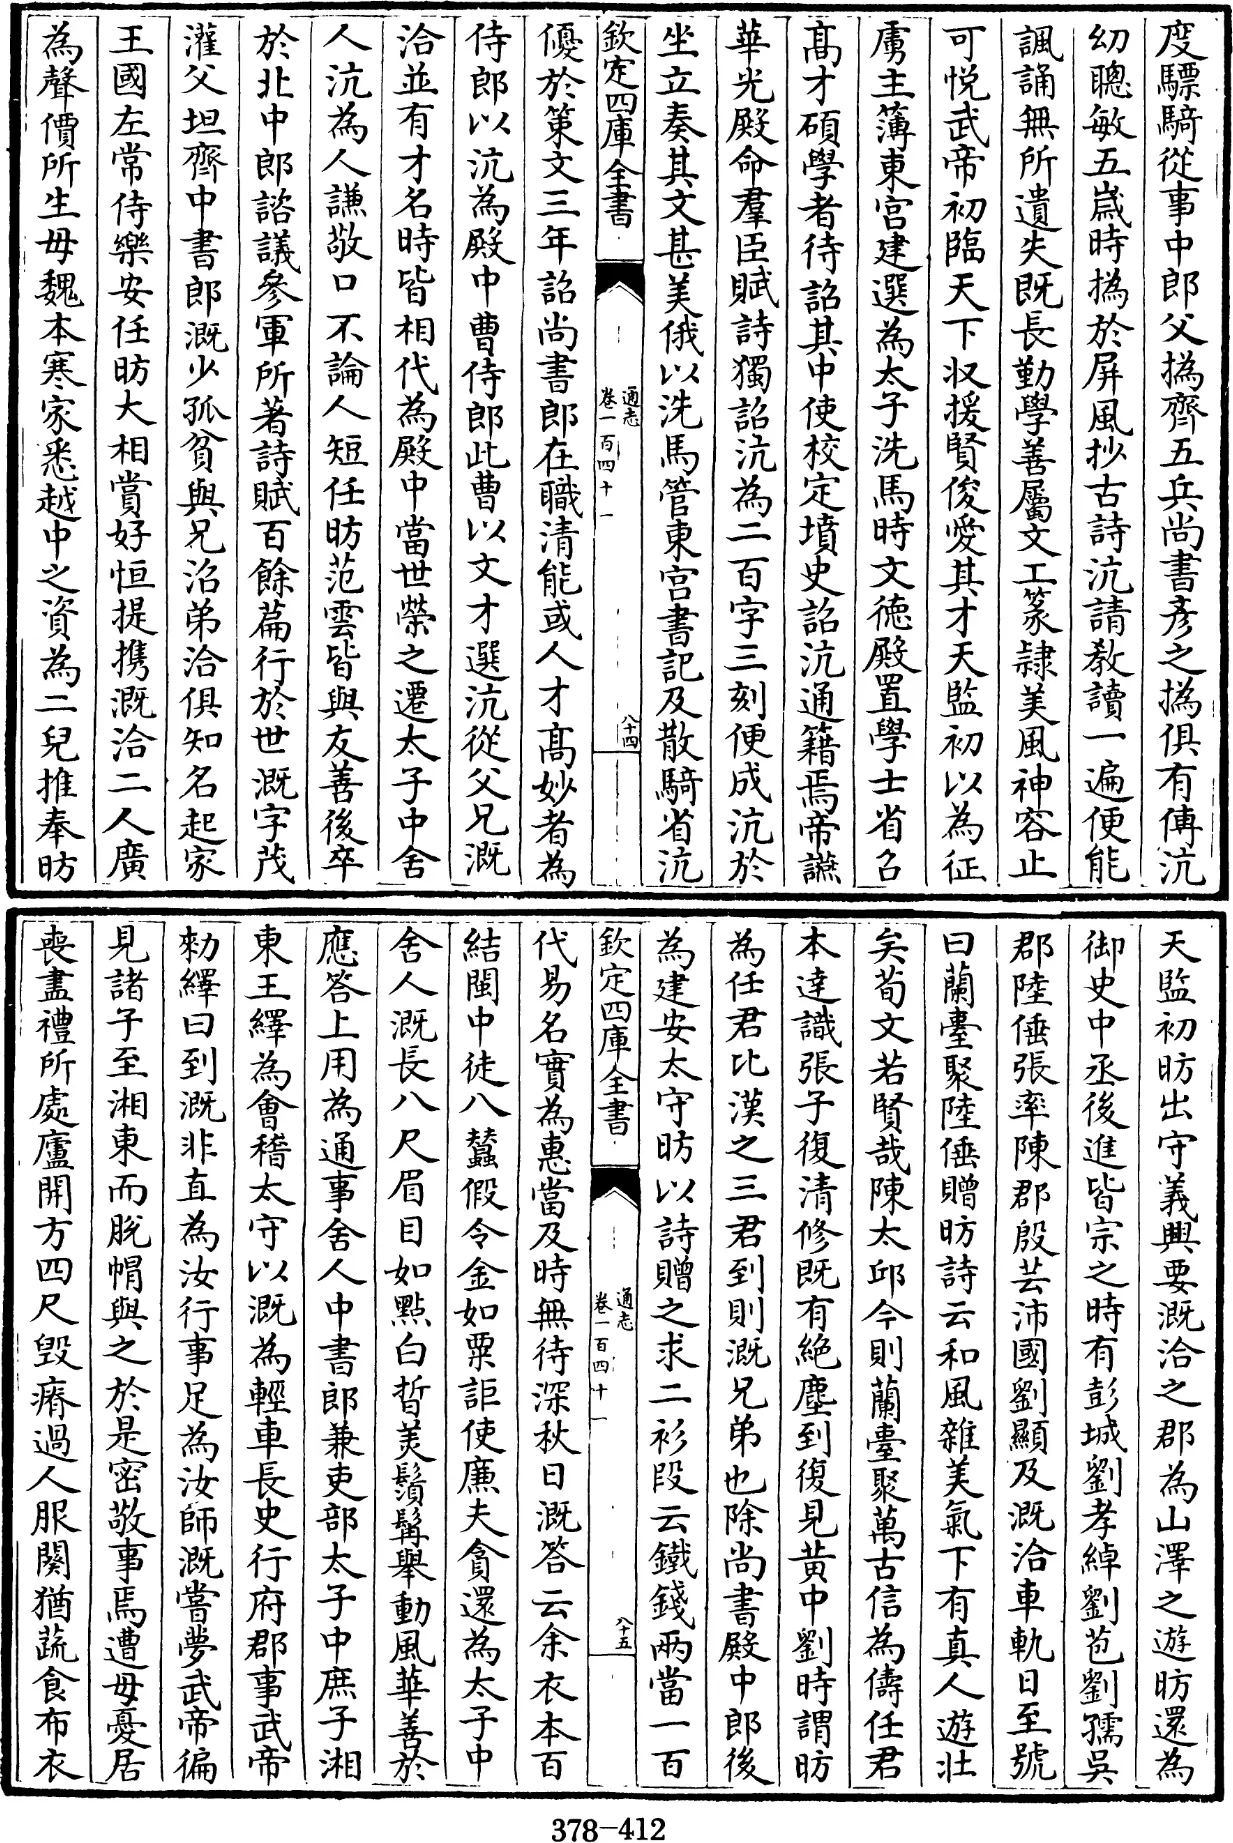 度驃騎從事中郎父撝齊五兵尚書彥之撝俱有傳沆
幼聰敏五嵗時撝於屏風抄古詩沆請教讀一遍便能
諷誦無所遺失既長勤學善屬文工篆隷美風神容止
可悅武帝初臨天下收援賢俊愛其才天監初以為征
虜主簿東宮建選為太子洗馬時文徳殿置學士省召
髙才碩學者待詔其中使校定墳史詔沆通籍焉帝讌
華光殿命羣臣賦詩獨詔沆為二百字三刻便成沆於
坐立奏其文甚美俄以洗馬管東宮書記及散騎省沆
欽定四庫全書
通志
卷一百四十一
八十四
優於策文三年詔尚書郎在職清能或人才髙妙者為
侍郎以沆為殿中曹侍郎此曹以文才選沆從父兄溉
洽並有才名時皆相代為殿中當世榮之遷太子中舍
人沆為人謙敬口不論人短任昉范雲皆與友善後卒
於北中郎諮議參軍所著詩賦百餘篇行於世溉字茂
灌父坦齊中書郎溉少孤貧與兄沼弟洽俱知名起家
王國左常侍樂安任昉大相賞好恒提携溉洽二人廣
為聲價所生毋魏本寒家悉越中之資為二兒推奉昉
天監初昉出守義興要溉洽之郡為山澤之遊昉還為
御史中丞後進皆宗之時有彭城劉孝綽劉苞劉孺吳
郡陸倕張率陳郡殷芸沛國劉顯及溉洽車軌日至號
曰蘭臺聚陸倕贈昉詩云和風雜美氣下有真人遊壯
矣荀文若賢哉陳太邱今則蘭臺聚萬古信為儔任君
本達識張子復清修既有絶塵到復見黄中劉時謂昉
為任君比漢之三君到則溉兄弟也除尚書殿中郎後
為建安太守昉以詩贈之求二衫段云鐵錢兩當一百
欽定四庫全書
通志
卷一百四十一
八十五
代易名實為惠當及時無待深秋日溉答云余衣本百
結閩中徒八蠶假令金如粟詎使廉夫貪還為太子中
舍人溉長八尺眉目如點白皙美鬚髯舉動風華善於
應答上用為通事舍人中書郎兼吏部太子中庶子湘
東王繹為會稽太守以溉為輕車長史行府郡事武帝
勑繹曰到溉非直為汝行事足為汝師溉嘗夢武帝徧
見諸子至湘東而脫帽與之於是密敬事焉遭毋憂居
喪盡禮所處廬開方四尺毀瘠過人服闋猶蔬食布衣
378-412